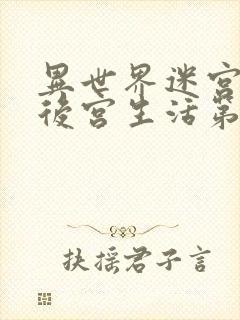 異世界迷宮
後宮生活第
扶摇君子言